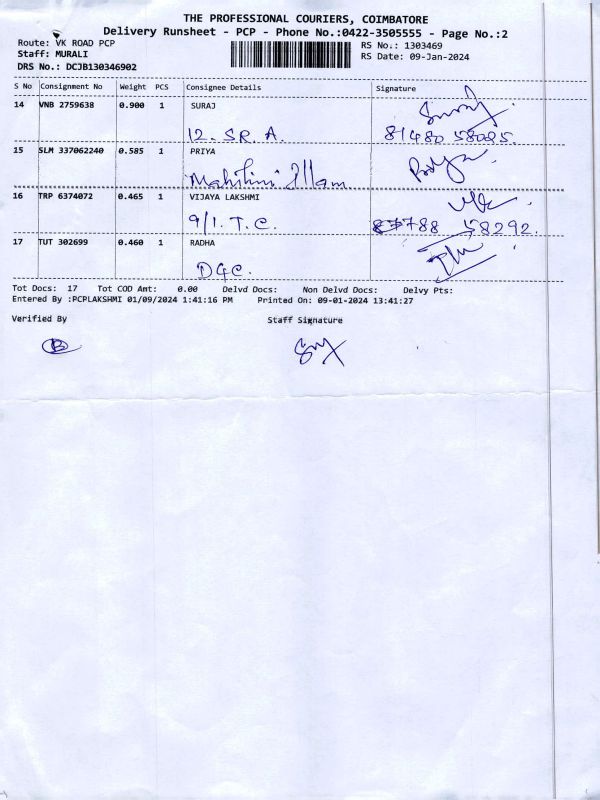 THE PROFESSIONAL COURIERS, COIMBATORE
Delivery Runsheet - PCP - Phone No.:0422-3505555 - Page No.:2
Route: VK ROAD PCP
Staff: MURALI
DRS No.: DCJB130346902
RS No.: 1303469
RS Date: 09-Jan-2024
S No Consignment No Weight PCS Consignee Details Signature
14 VNB 2759638 0.900 1 SURAJ
12. S.R. A. 81480 58085.
15 SLM 337062240 0.585 1 PRIYA
Illam
16 TRP 6374072 0.465 1 VIJAYA LAKSHMI
9/1. T. C. 788 58292.
17 TUT 302699 0.460 1 RADHA
DGC.
Tot Docs: 17 Tot COD Amt: 0.00 Delvd Docs: Non Delvd Docs: Delvy Pts:
Entered By :PCPLAKSHMI 01/09/2024 1:41:16 PM Printed On: 09-01-2024 13:41:27
Verified By Staff Signature